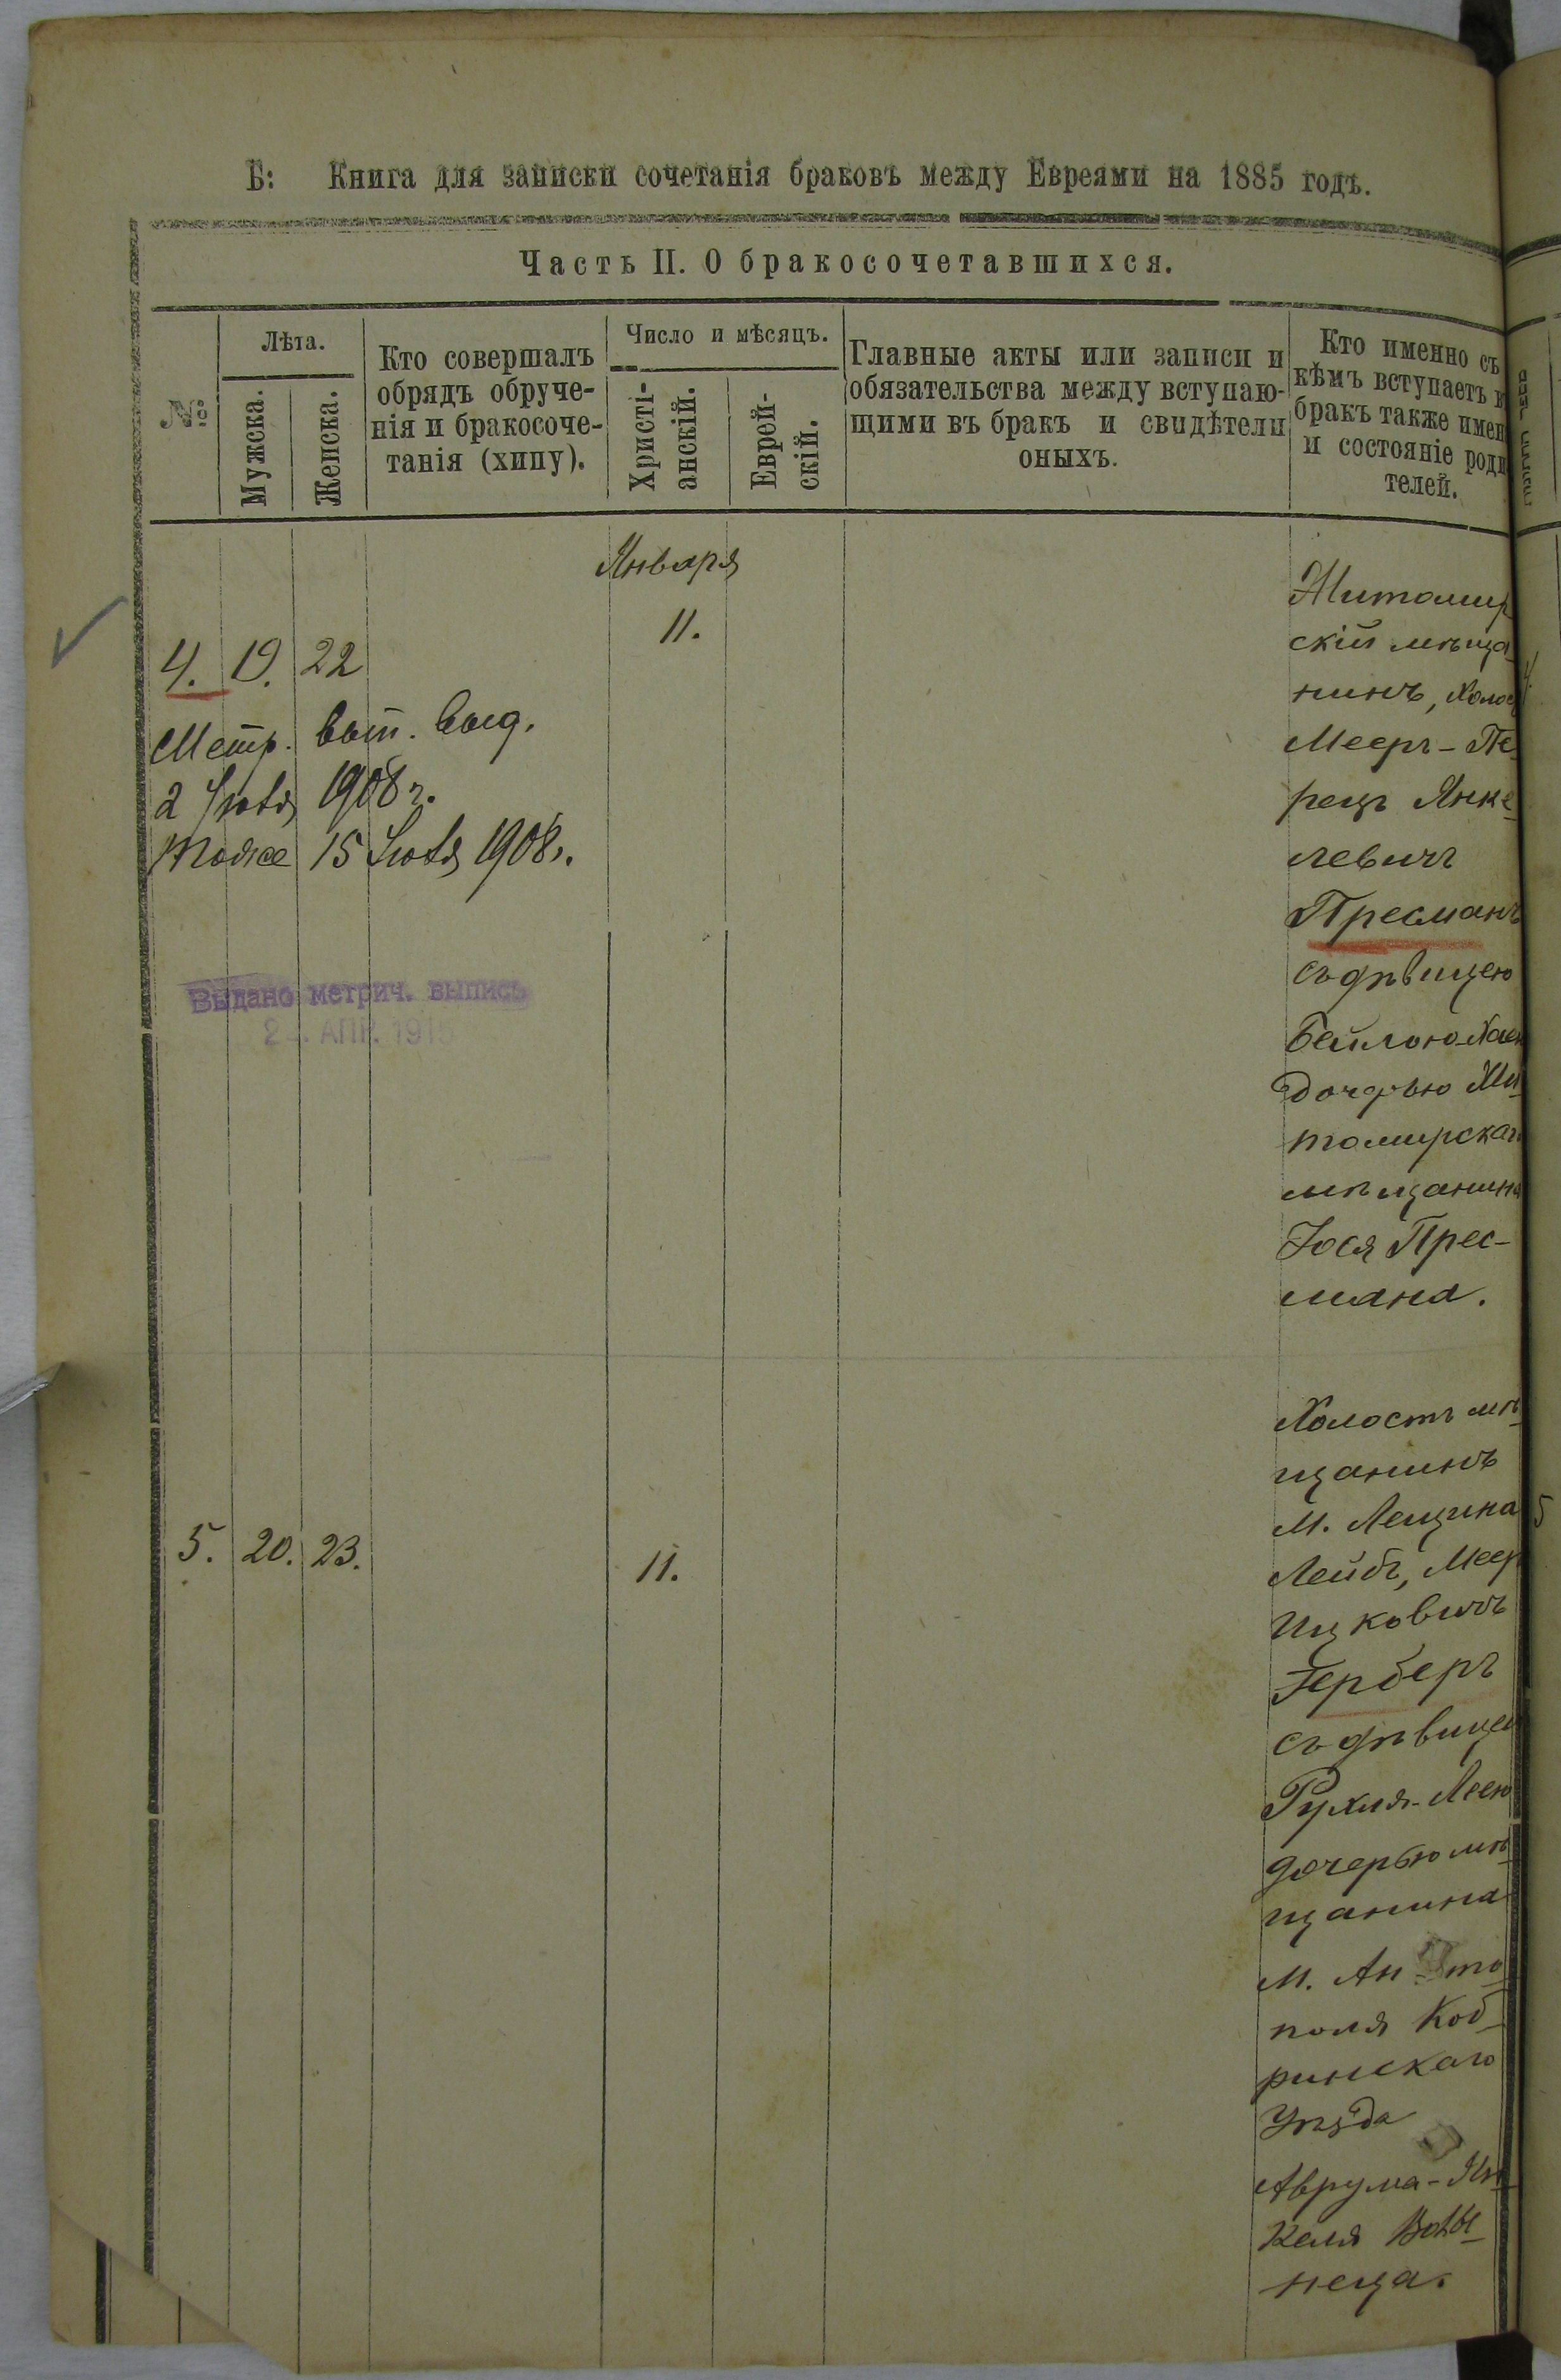 Б: Книга для записки сочетанія браковъ между Евреями на 1885 годъ.
Часть II. О бракосочетавшихся.
№
Лѣта.
Мужска.
Женска.
Кто совершалъ
обрядъ обруче-
нія и бракосоче-
танія (хипу).
Число и мѣсяцъ.
Христі-
анскій.
Еврей-
скій.
Главные акты или записи и
обязательства между вступаю-
щими въ бракъ и свидѣтели
оныхъ.
Кто именно съ
кѣмъ вступаетъ в
бракъ также имен
и состояніе роди
телей.
Января
4. 19. 22
11.
Метр. вып. выд.
2 Іюля 1908 г.
Тоже 15 Іюля 1908 г.
Выдано метрич. выпись
АПР. 191
Житомир
скій мѣща
нинъ, Холос
Мееръ-Пе
рецъ Янке
левичъ
Пресманъ
съ дѣвицею
Бейлою-Хаею
дочерью Жи
томирскаго
мѣщанина
Іося Прес-
мана.
5. 20. 23.
11.
Холостъ мѣ
щанинъ
М. Лещина
Лейбъ, Меер
Ицковичъ
Герберъ
съ дѣвицею
Рухля-Леею
дочерью мѣ
щанина
М. Ан-то
поля Коб-
ринскаго
Уѣзда
Аврума-Ян
келя Волы-
неца.
5